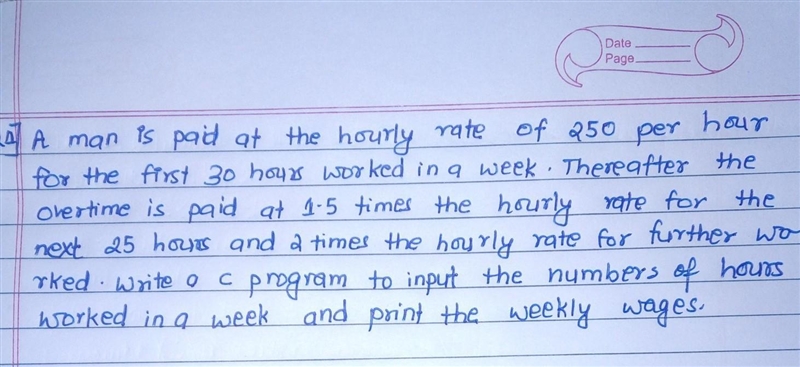 Date
Page
Q] A man is paid at the hourly rate of 250 per hour
for the first 30 hours worked in a week. Thereafter the
overtime is paid at 1.5 times the hourly rate for the
next 25 hours and 2 times the hourly rate for further wo
rked. Write a C program to input the numbers of hours
worked in a week and print the weekly wages.